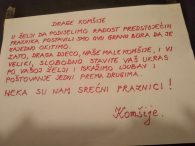 DRAGE KOMŠIJE
U ŽELJI DA PODIJELIMO RADOST PREDSTOJEĆIH
PRAZNIKA, POSTAVILI SMO OVU GRANU BORA DA JE
ZAJEDNO OKITIMO.
ZATO, DRAGA DJECO, NAŠE MALE KOMŠIJE, I VI
VELIKI, SLOBODNO STAVITE VAŠ UKRAS
PO VAŠOJ ŽELJI I ISKAŽIMO LJUBAV I
POŠTOVANJE JEDNI PREMA DRUGIMA.
NEKA SU NAM SREĆNI PRAZNICI!
Komšije.